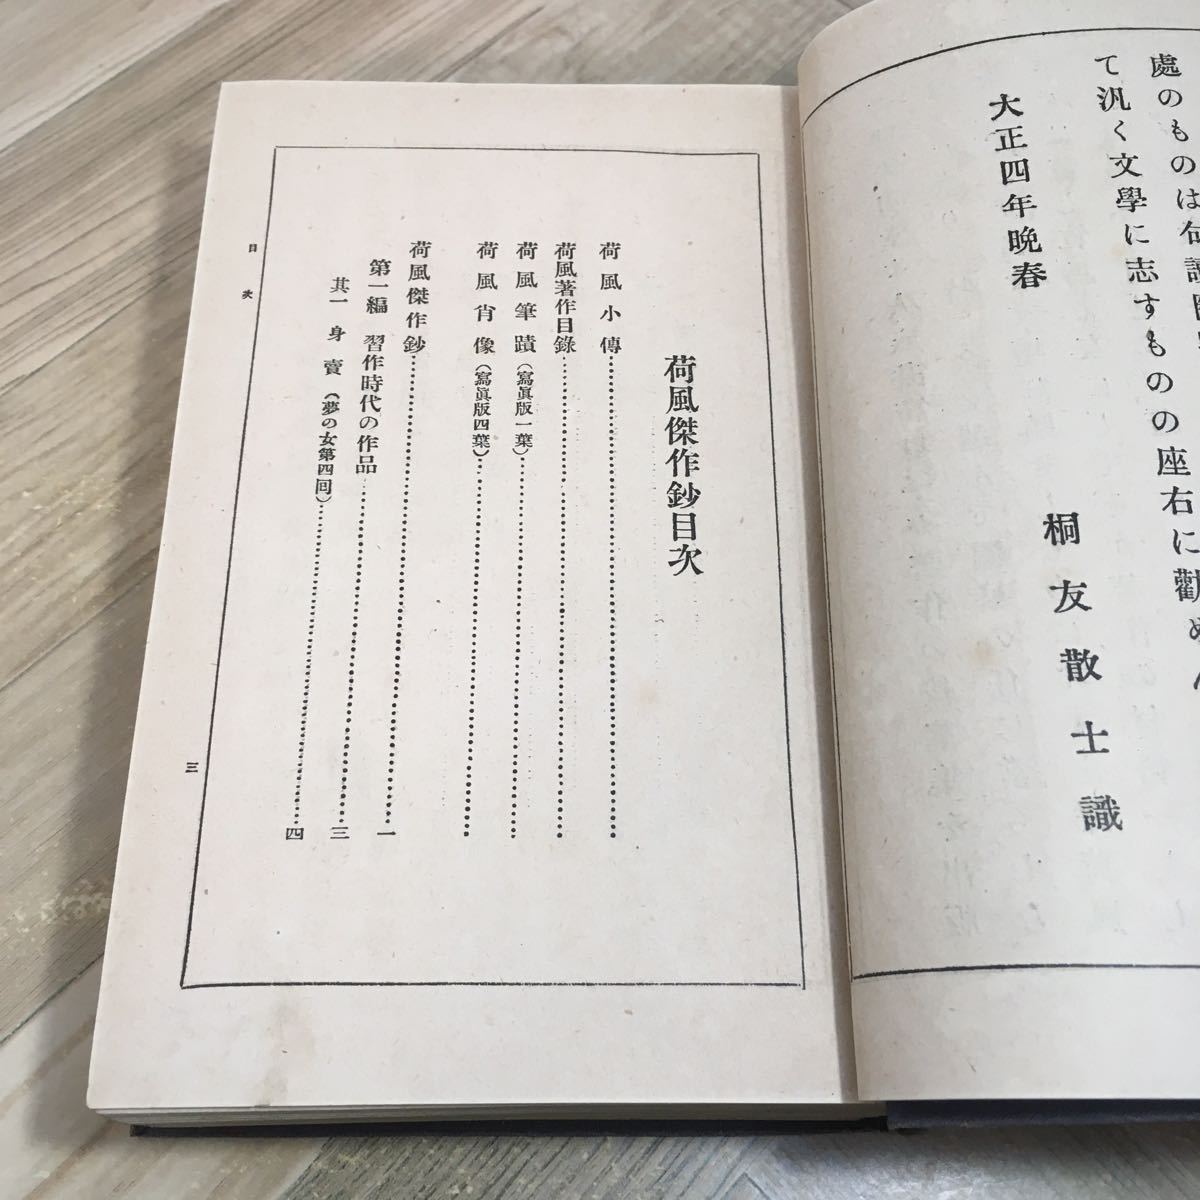 處のものは句讀
て汎く文學に志すものの座右に勸めん
大正四年晩春
桐友散士識
荷風傑作鈔目次
荷風小傳
荷風著作目錄
荷風筆蹟（寫眞版一葉）
荷風肖像（寫眞版四葉）
荷風傑作鈔 一
第一編 習作時代の作品 三
其一 身賣（夢の女第四囘） 四
目次
三